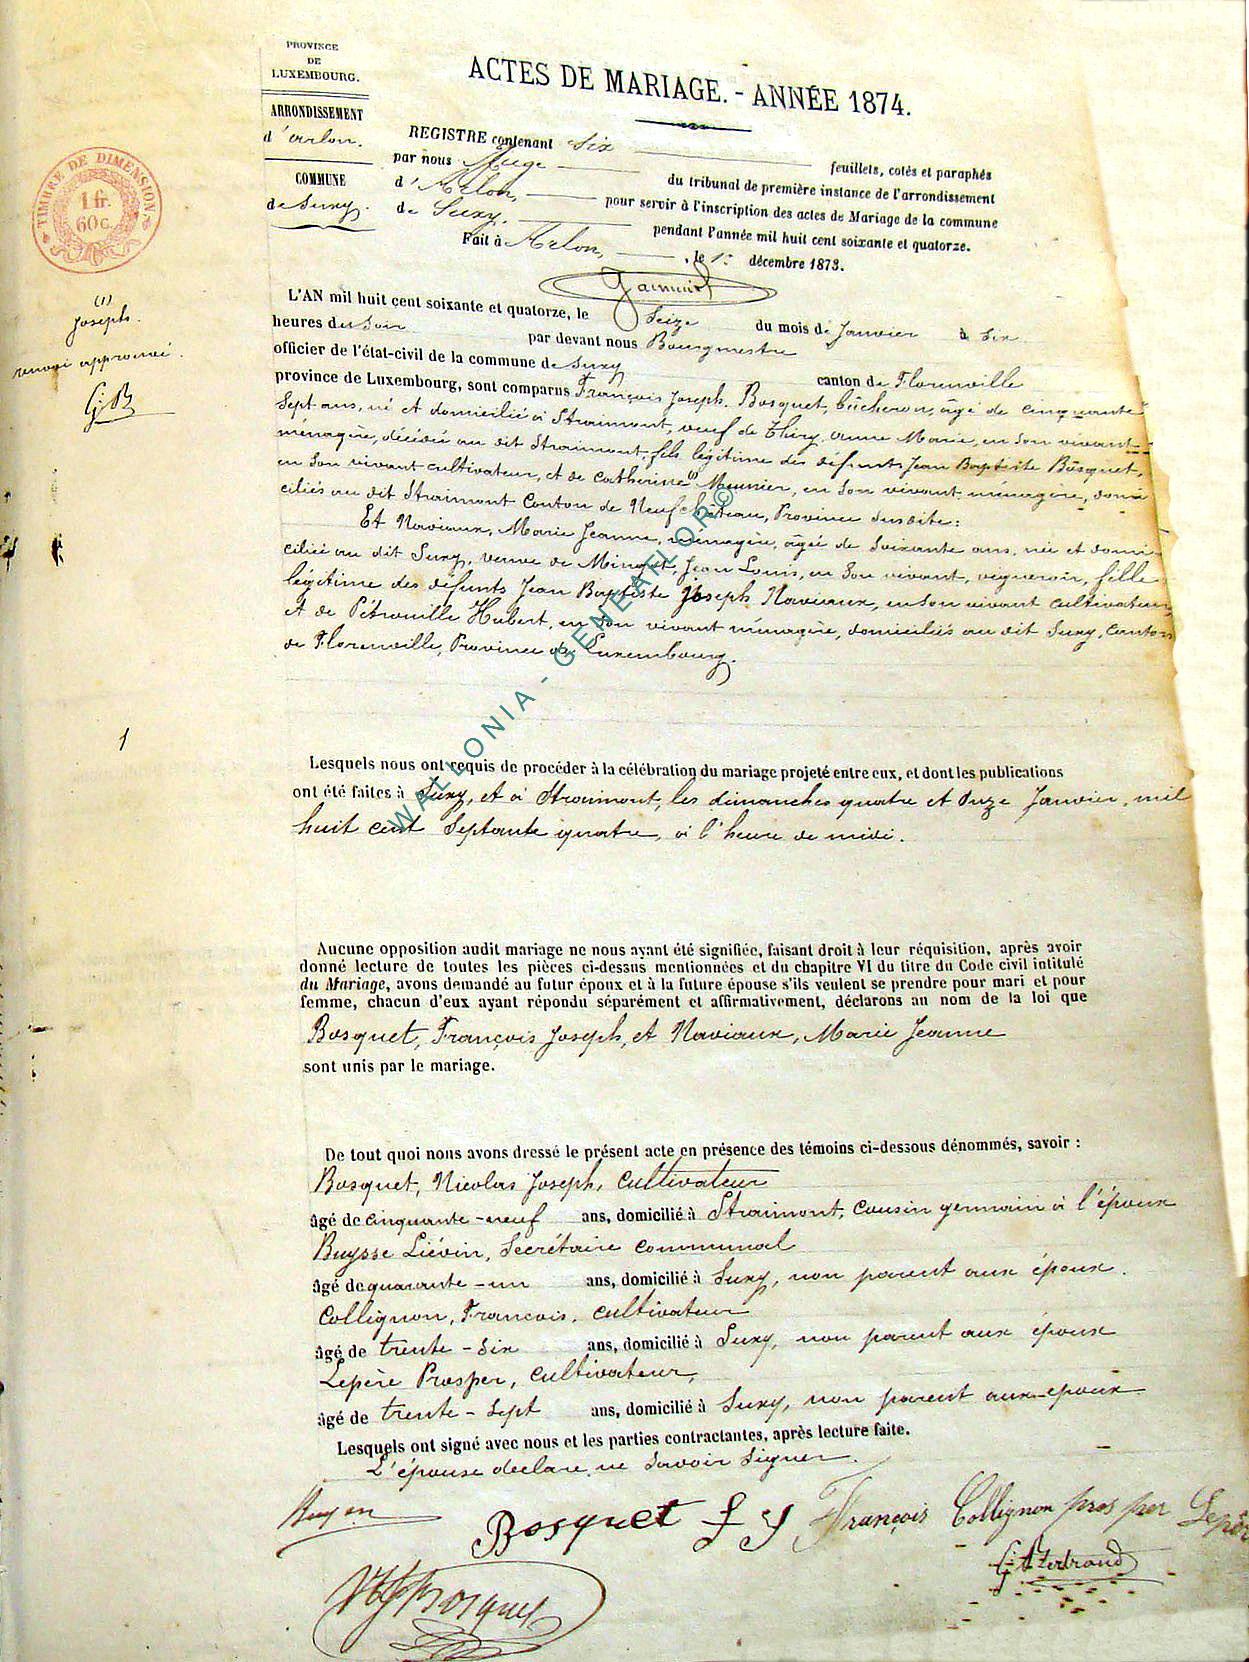 PROVINCE
DE
LUXEMBOURG.
ARRONDISSEMENT
d'Arlon.
COMMUNE
de Suxy.
TIMBRE DE DIMENSION
1 fr.
60 c.
(1)
Joseph.
renvoi approuvé.
G.B
1
ACTES DE MARIAGE. - ANNÉE 1874.
REGISTRE contenant six feuillets, cotés et paraphés
par nous Juge du tribunal de première instance de l'arrondissement
d'Arlon, pour servir à l'inscription des actes de Mariage de la commune
de Suxy. pendant l'année mil huit cent soixante et quatorze.
Fait à Arlon, , le 1er décembre 1873.
L'AN mil huit cent soixante et quatorze, le Seize du mois de Janvier à six
heures du soir par devant nous Bourgmestre
officier de l'état-civil de la commune de Suxy canton de Florenville
province de Luxembourg, sont comparus François Joseph Bosquet, bûcheron, âgé de cinquante
sept ans, né et domicilié à Straimont, veuf de Thiry, Anne Marie, en son vivant
ménagère, décédée au dit Straimont, fils légitime des défunts Jean Baptiste Bosquet,
en son vivant cultivateur, et de Catherine (1) Meunier, en son vivant ménagère, domi
ciliés au dit Straimont Canton de Neufchâteau, Province susdite:
Et Naviaux, Marie Jeanne, ménagère, âgée de soixante ans, née et domi
ciliée au dit Suxy, veuve de Minget, Jean Louis, en son vivant, vigneron, fille
légitime des défunts Jean Baptiste Joseph Naviaux, en son vivant cultivateur,
et de Pétronille Hubert, en son vivant ménagère, domiciliés au dit Suxy, canton
de Florenville, Province de Luxembourg.
Lesquels nous ont requis de procéder à la célébration du mariage projeté entre eux, et dont les publications
ont été faites à Suxy, et à Straimont, les dimanches quatre et onze Janvier, mil
huit cent septante quatre, à l'heure de midi.
Aucune opposition audit mariage ne nous ayant été signifiée, faisant droit à leur réquisition, après avoir
donné lecture de toutes les pièces ci-dessus mentionnées et du chapitre VI du titre du Code civil intitulé
du Mariage, avons demandé au futur époux et à la future épouse s'ils veulent se prendre pour mari et pour
femme, chacun d'eux ayant répondu séparément et affirmativement, déclarons au nom de la loi que
Bosquet, François Joseph, et Naviaux, Marie Jeanne
sont unis par le mariage.
De tout quoi nous avons dressé le présent acte en présence des témoins ci-dessous dénommés, savoir :
Bosquet, Nicolas Joseph, cultivateur
âgé de cinquante-neuf ans, domicilié à Straimont, cousin germain à l'époux
Buysse Liévin, Secrétaire communal
âgé de quarante-un ans, domicilié à Suxy, non parent aux époux.
Collignon, François, cultivateur
âgé de trente-six ans, domicilié à Suxy, non parent aux époux
Lepère Prosper, cultivateur,
âgé de trente-sept ans, domicilié à Suxy, non parent aux époux
Lesquels ont signé avec nous et les parties contractantes, après lecture faite.
L'épouse déclare ne savoir signer.
Bosquet f y François Collignon pros per Lepère
Bosquet
WALLONIA - GENEAFLOR©